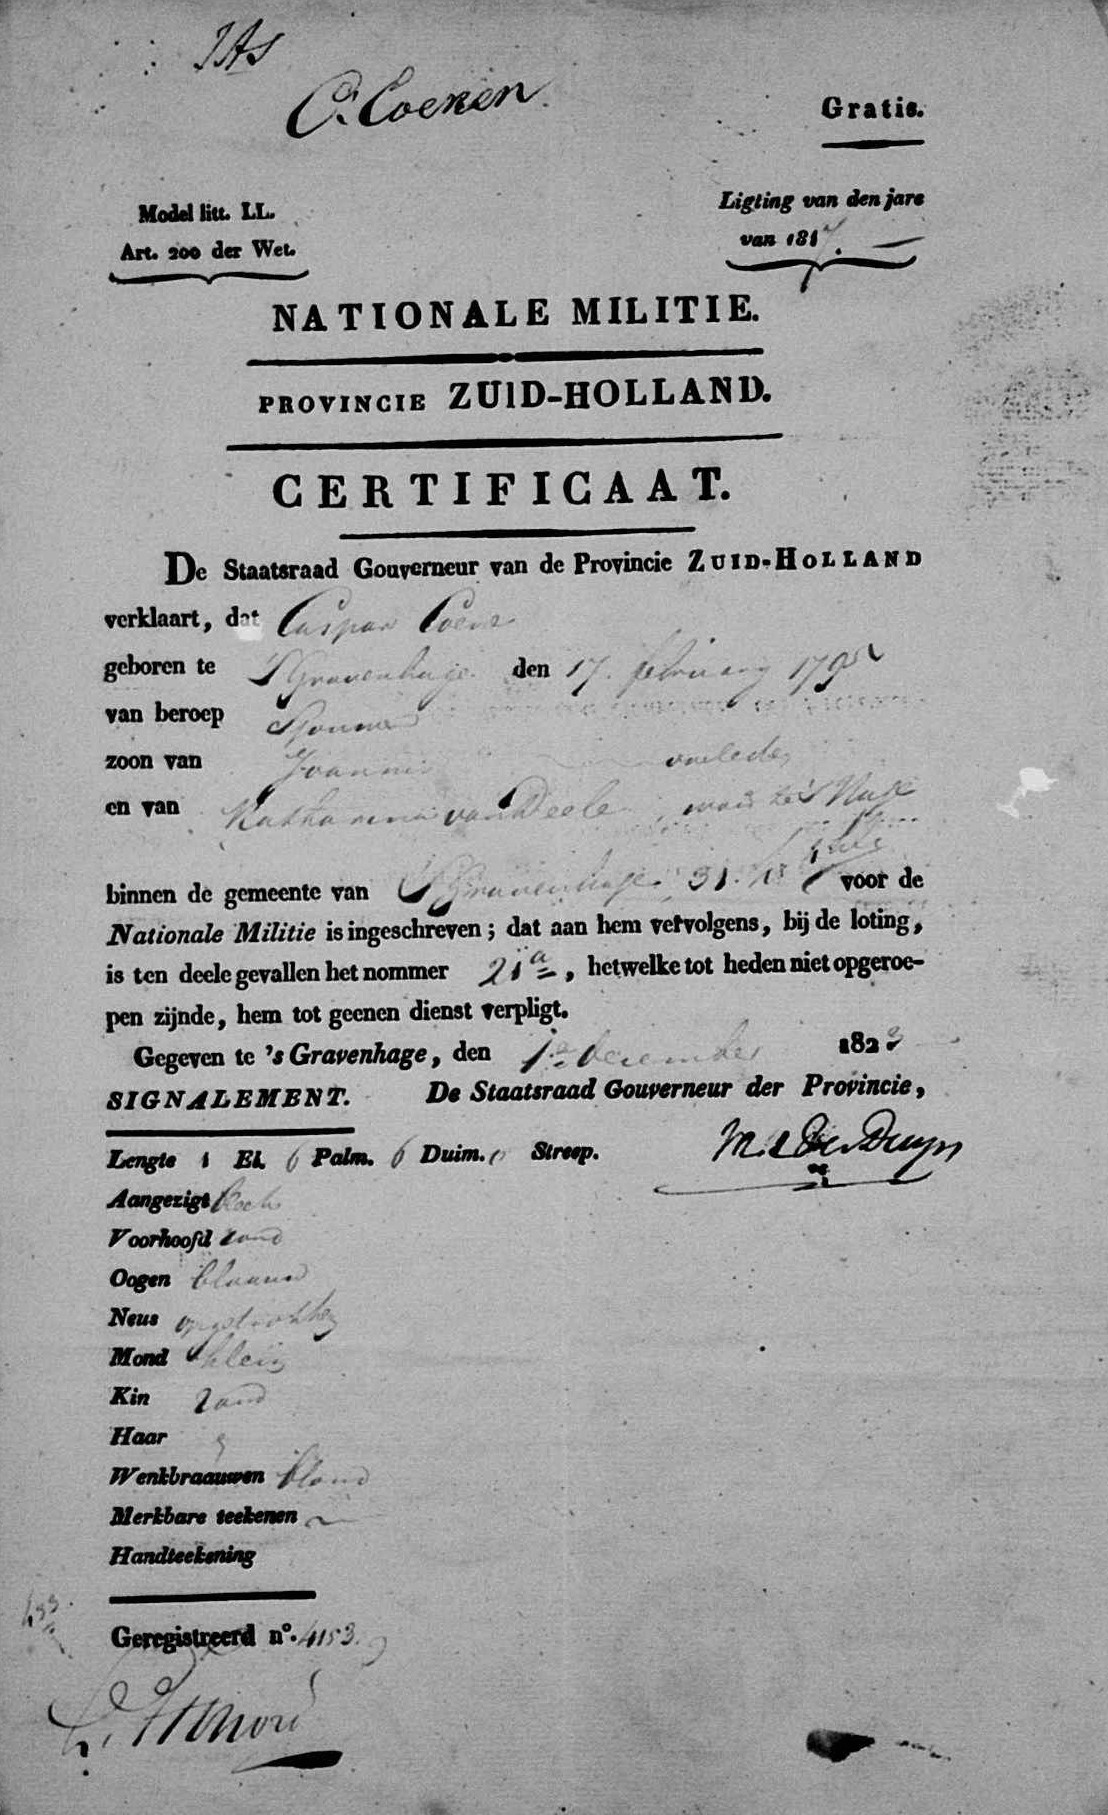 C. Coenen
Gratis.
Model litt. LL.
Art. 200 der Wet.
Ligting van den jare
van 1817.
NATIONALE MILITIE.
PROVINCIE ZUID-HOLLAND.
CERTIFICAAT.
De Staatsraad Gouverneur van de Provincie ZUID-HOLLAND
verklaart, dat Caspar Coene
geboren te S Gravenhage den 17. februarij 179
van beroep
zoon van Joannis overleden
en van Katharina van Deele
binnen de gemeente van S Gravenhage voor de
Nationale Militie is ingeschreven; dat aan hem vervolgens, bij de loting,
is ten deele gevallen het nommer 21a, hetwelke tot heden niet opgeroe-
pen zijnde, hem tot geenen dienst verpligt.
Gegeven te 's Gravenhage, den 1e december 1823
SIGNALEMENT. De Staatsraad Gouverneur der Provincie,
Lengte 1 El. 6 Palm. 6 Duim. Streep.
Aangezigt
Voorhoofd rond
Oogen blaauw
Neus
Mond klein
Kin rond
Haar
Wenkbraauwen blond
Merkbare teekenen
Handteekening
Geregistreerd n°. 4153.